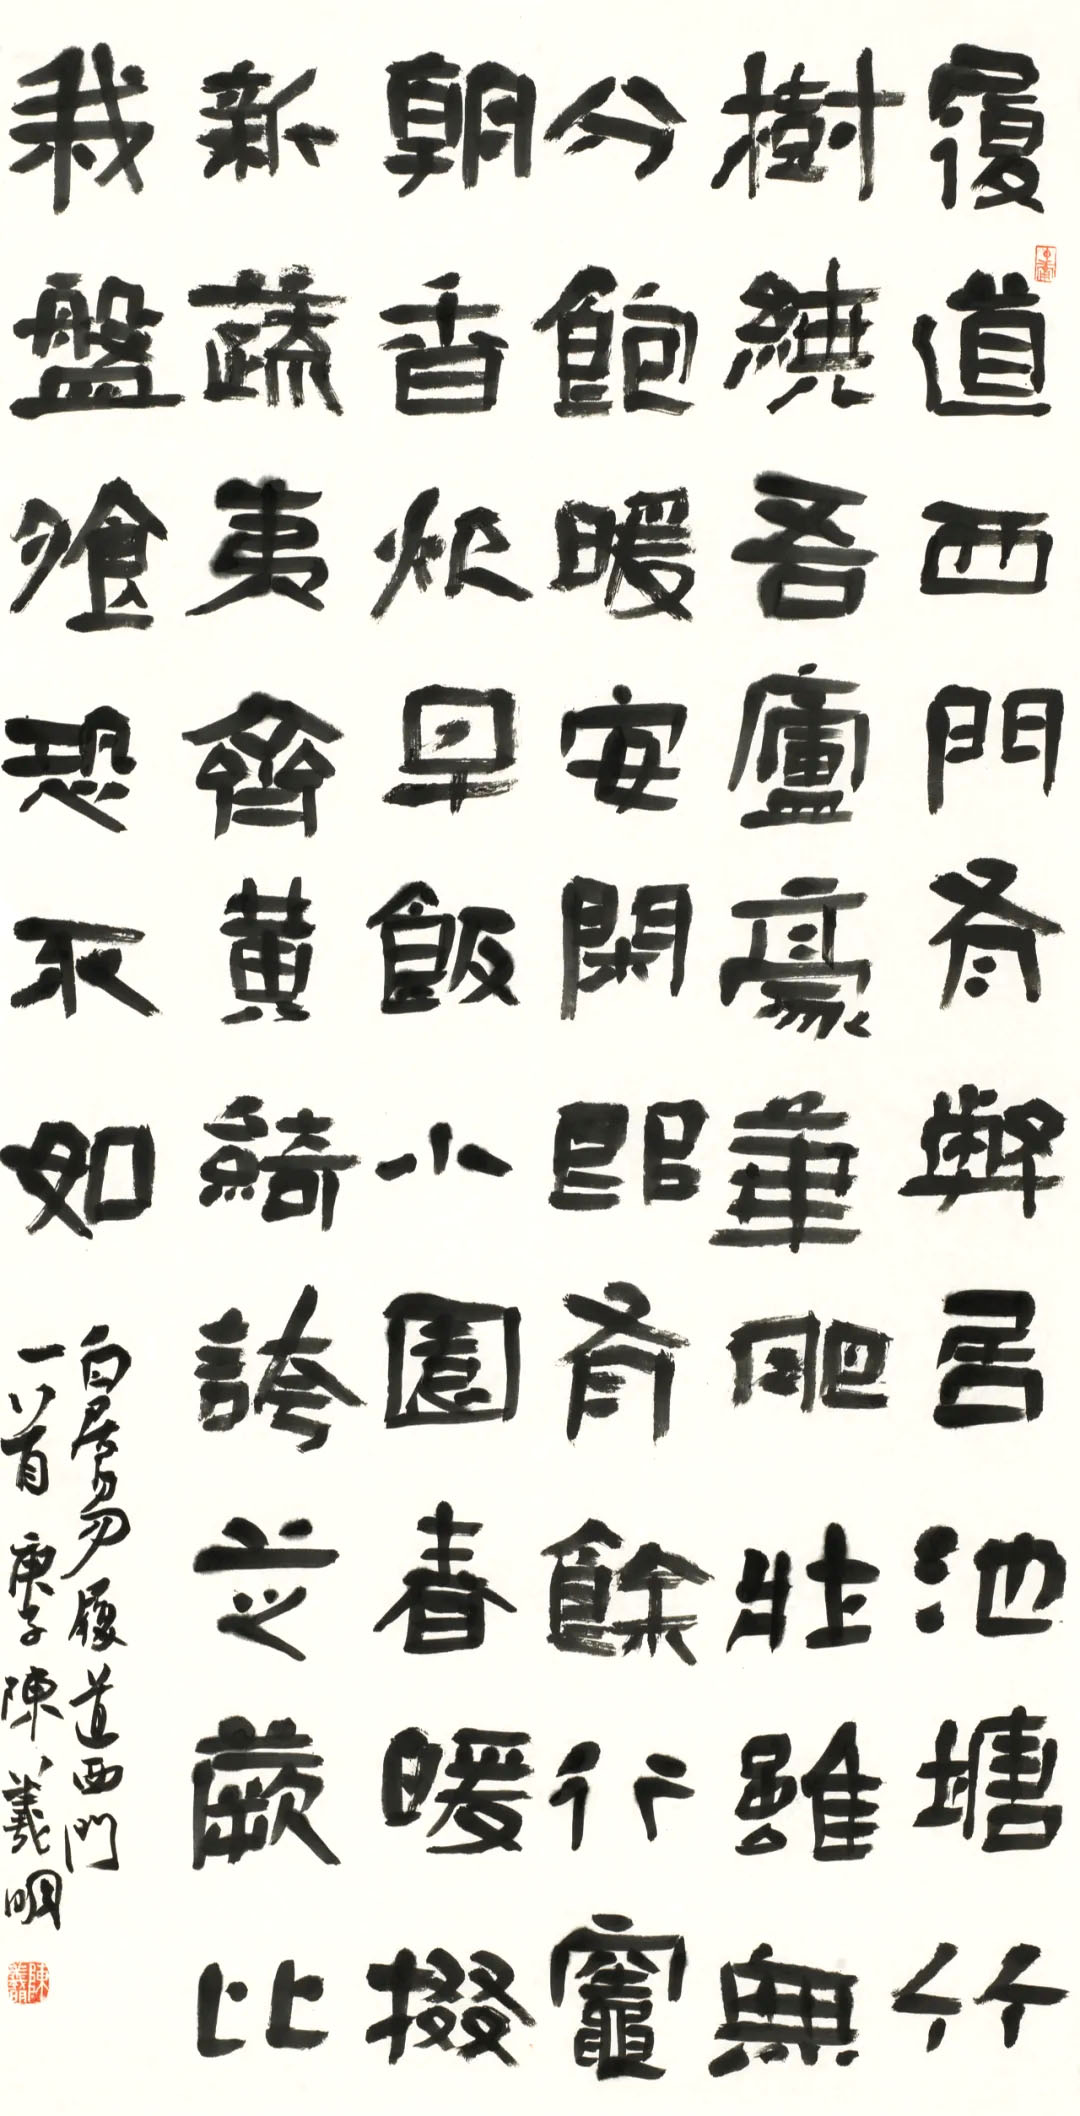 履道西門有弊居池塘竹
樹繞吾廬豪華肥壯雖無
分飽暖安閑即有餘行竈
朝香炊早飯小園春暖掇
新蔬夷齊黄綺誇芝蕨比
我盤飧恐不如
白居易履道西門
一首庚子陳羲明